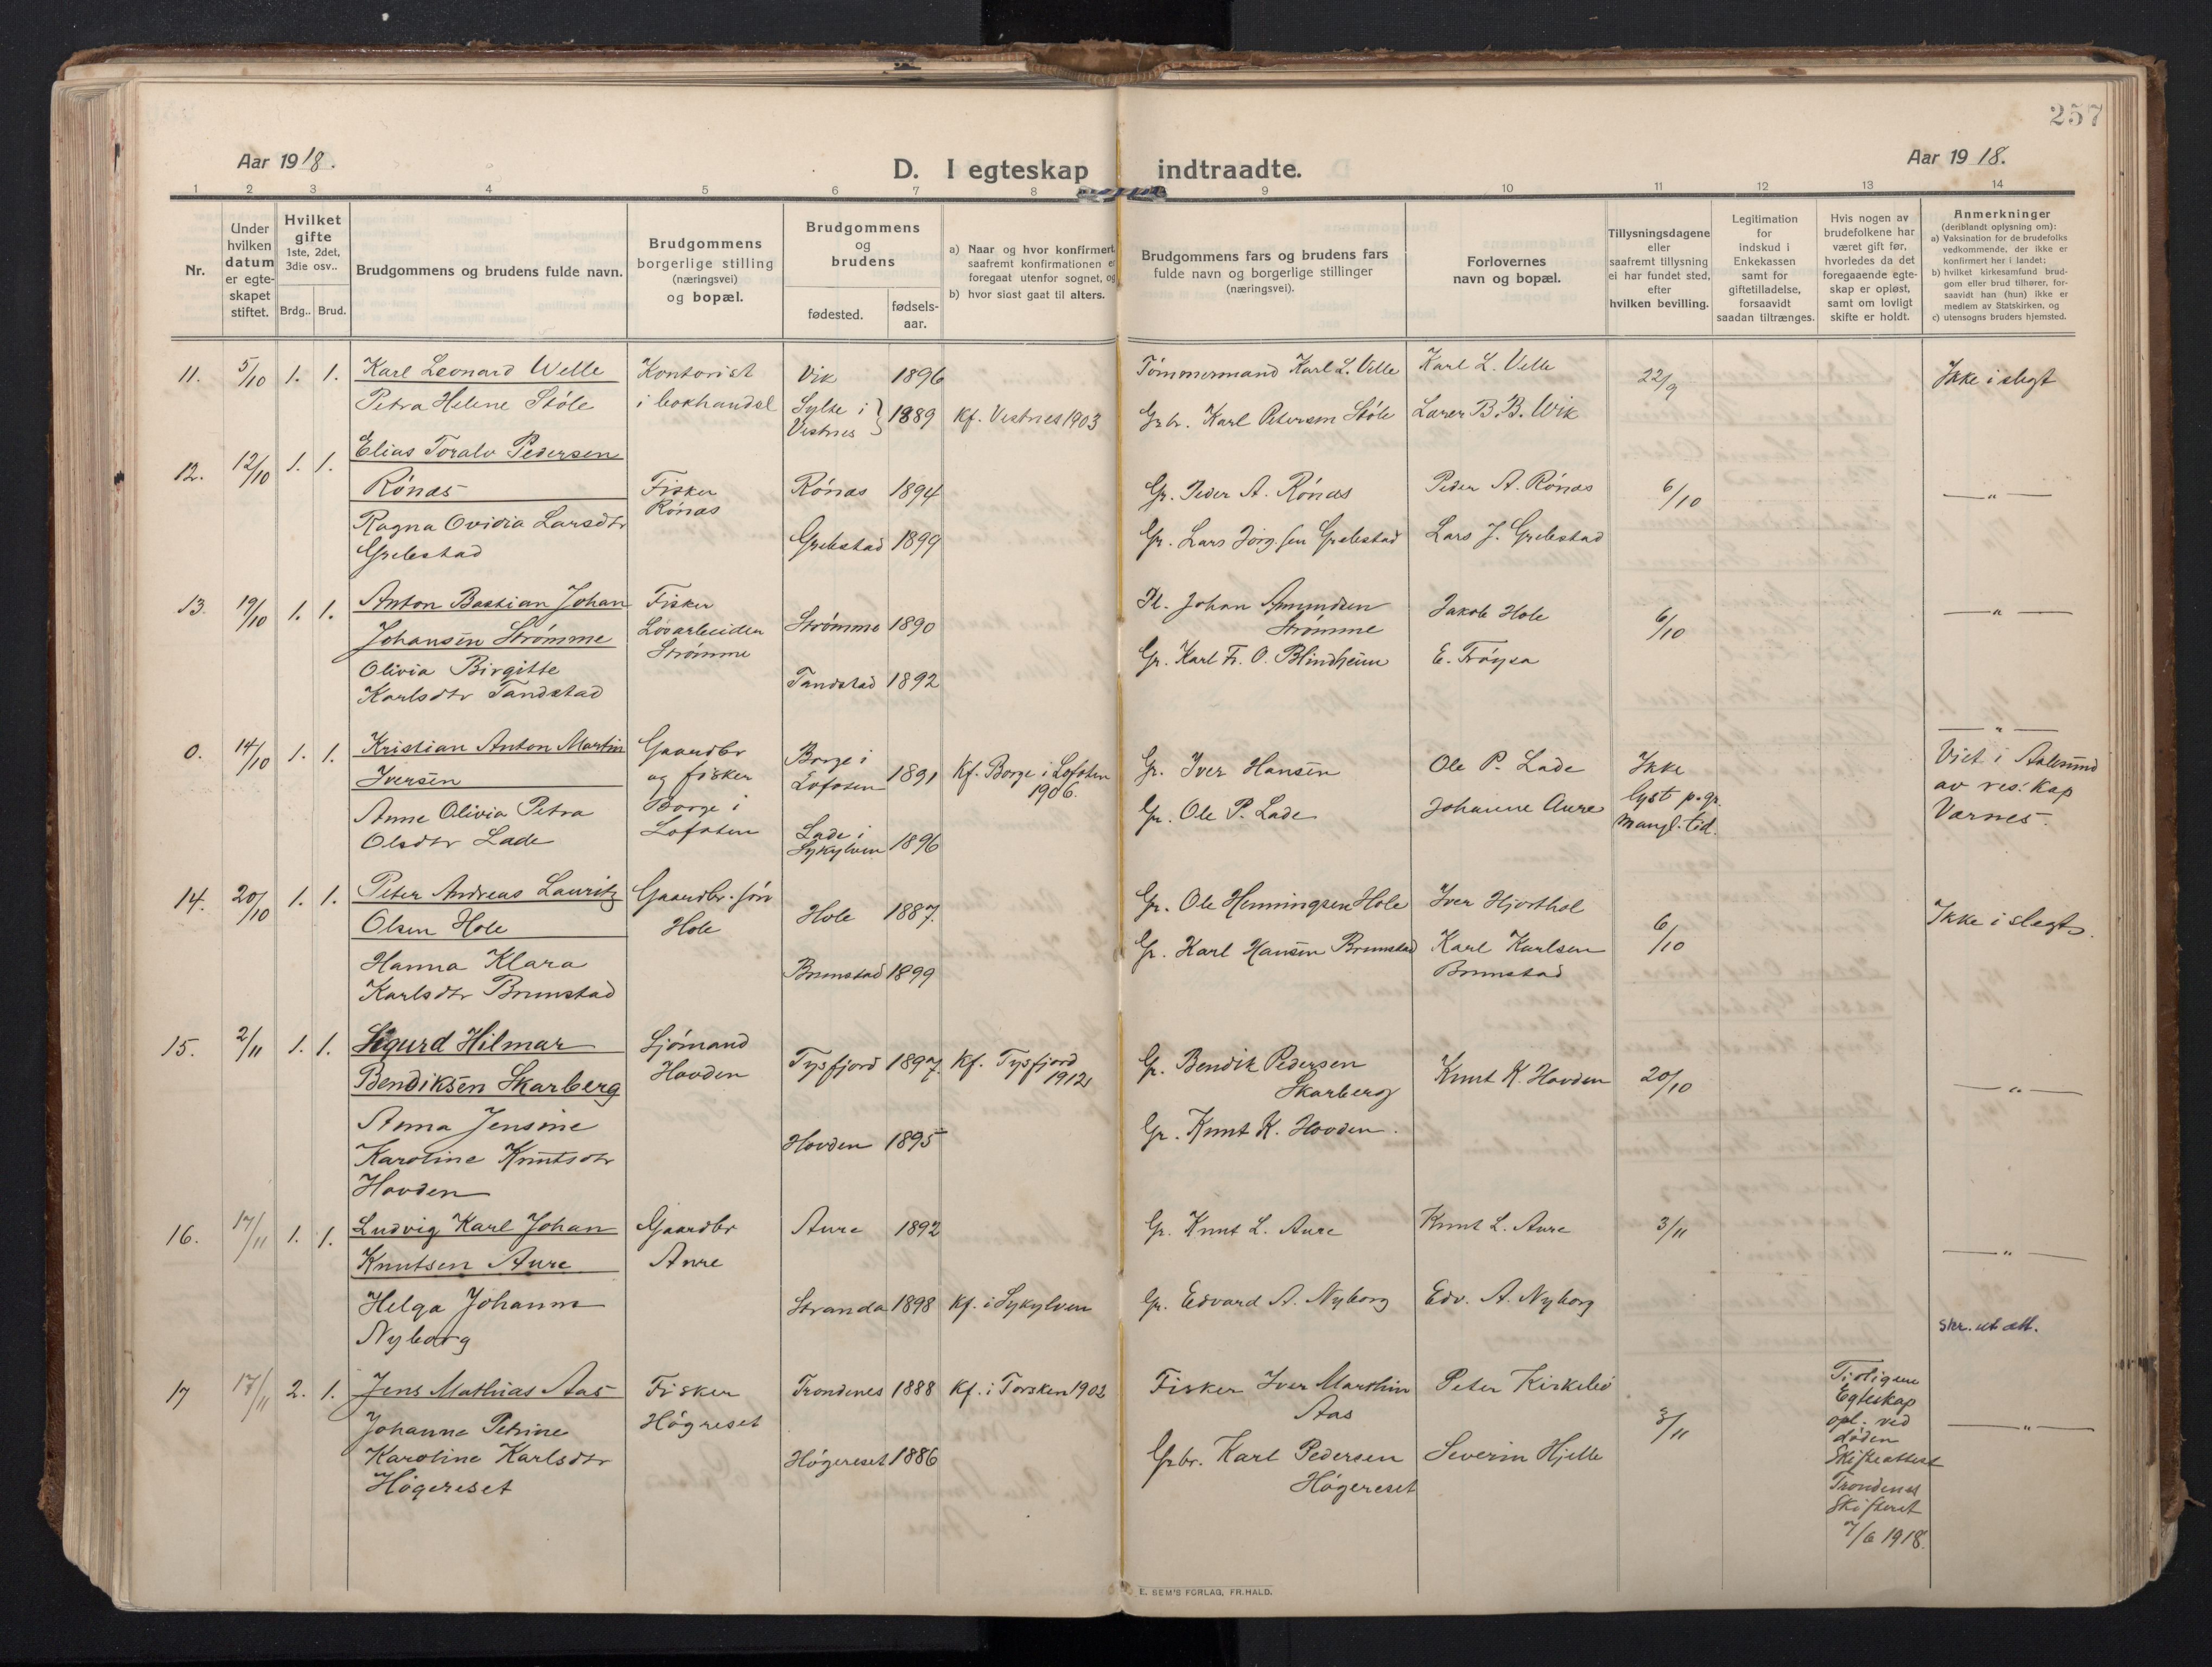 257
Aar 1918.
D. I egteskap indtraadte.
Aar 1918.
1 2 3 4 5 6 7 8 9 10 11 12 13 14
Nr.
Under hvilken datum er egteskapet stiftet.
Hvilket gifte
1ste, 2det, 3die osv..
Brdg.. Brud.
Brudgommens og brudens fulde navn.
Brudgommens borgerlige stilling (næringsvei) og bopæl.
Brudgommens og brudens
fødested.
fødsels-aar.
a) Naar og hvor konfirmert saafremt konfirmationen er foregaat utenfor sognet, og
b) hvor sidst gaat til alters.
Brudgommens fars og brudens fars fulde navn og borgerlige stillinger (næringsvei).
Forlovernes navn og bopæl.
Tillysningsdagene eller saafremt tillysning ei har fundet sted, efter hvilken bevilling.
Legitimation for indskud i Enkekassen samt for giftetilladelse, forsaavidt saadan tiltrænges.
Hvis nogen av brudefolkene har været gift før, hvorledes da det foregaaende egteskap er opløst, samt om lovligt skifte er holdt.
Anmerkninger
(deriblandt oplysning om):
a) Vaksination for de brudefolks vedkommende, der ikke er konfirmert her i landet:
b) hvilket kirkesamfund brudgom eller brud tilhører, forsaavidt han (hun) ikke er medlem av Statskirken, og
c) utensogns bruders hjemsted.
11. 5/10 1. 1. Karl Leonard Welle Kontorist Vik 1896 Tømmermand Karl L. Velle Karl L. Velle 22/9 Ikke i slegt
Petra Helene Støle i bokhandel Sylte i Vestnes 1889 Kf. Vestnes 1903 Grbr. Karl Petersen Støle Lærer B. B. Wik
12. 12/10 1. 1. Elias Toralv Pedersen
Rønæs Fisker Rønæs 1894 Gr. Peder A. Rønæs Peder A. Rønæs 6/10 — " —
Rønæs
Ragna Ovidia Larsdtr
Grebstad Grebstad 1899 Gr. Lars Jørg.sen Grebstad Lars J. Grebstad
13. 19/10 1. 1. Anton Bastian Johan Fisker Pl. Johan Amundsen Jakob Hole 6/10 — " —
Johansen Strømme Løsarbeider Strømme 1890 Strømme
Strømme
Olivia Birgitte Gr. Karl Fr. O. Blindheim E. Trøysa
Karlsdtr Tandstad Tandstad 1892
0. 14/10 1. 1. Kristian Anton Martin Gaardbr Borge i — " —
Iversen og fisker Lofoten 1891 Kf. Borge i Lofoten 1906. Gr. Iver Hansen Ole P. Lade Ikke lyst p.gr. mangl. tid. Viet i Aalesund av res. kap Værnes.
Anne Olivia Petra Borge i
Olsdtr Lade Lofoten Lade i Sykylven 1896 Gr. Ole P. Lade Johanne Aure
14. 20/10 1. 1. Peter Andreas Lauritz Gaardbr. søn
Olsen Hole Hole Hole 1887. Gr. Ole Henningsen Hole Iver Hjorthol 6/10 Ikke i slegt.
Hanna Klara Gr. Karl Hansen Brunstad Karl Karlsen Brunstad
Karlsdtr Brunstad Brunstad 1899
15. 2/11 1. 1. Sigurd Hilmar Sjømand
Bendiksen Skarberg Hovden Tysfjord 1897. Kf. Tysfjord 1912 Gr. Bendik Pedersen Skarberg Knut K. Hovden 20/10 — " —
Anna Jensine
Karoline Knutsdtr Hovden 1895 Gr. Knut K. Hovden.
Hovden
16. 17/11 1. 1. Ludvig Karl Johan Gaardbr Aure 1892 Gr. Knut L. Aure Knut L. Aure 3/11 — " —
Knutsen Aure Aure
Helga Johanne Stranda 1898 Kf. i Sykylven Gr. Edvard A. Nyborg Edv. A. Nyborg
Nyborg skr. ut att.
17 17/11 2. 1. Jens Mathias Aas Fisker Trondenes 1888 Kf. i Torsken 1902 Fisker Iver Marthin Aas Peter Kirkebø 3/11 — " —
Johanne Petrine Høgreset
Karoline Karlsdtr Høgereset 1886 Grbr. Karl Pedersen Høgereset Severin Hjelle
Høgereset
Tidligere
Egteskap
opl. ved
døden
Skifteattest
Trondenes
Skifteret
7/6 1918.
E. SEM'S FORLAG, FR.HALD.